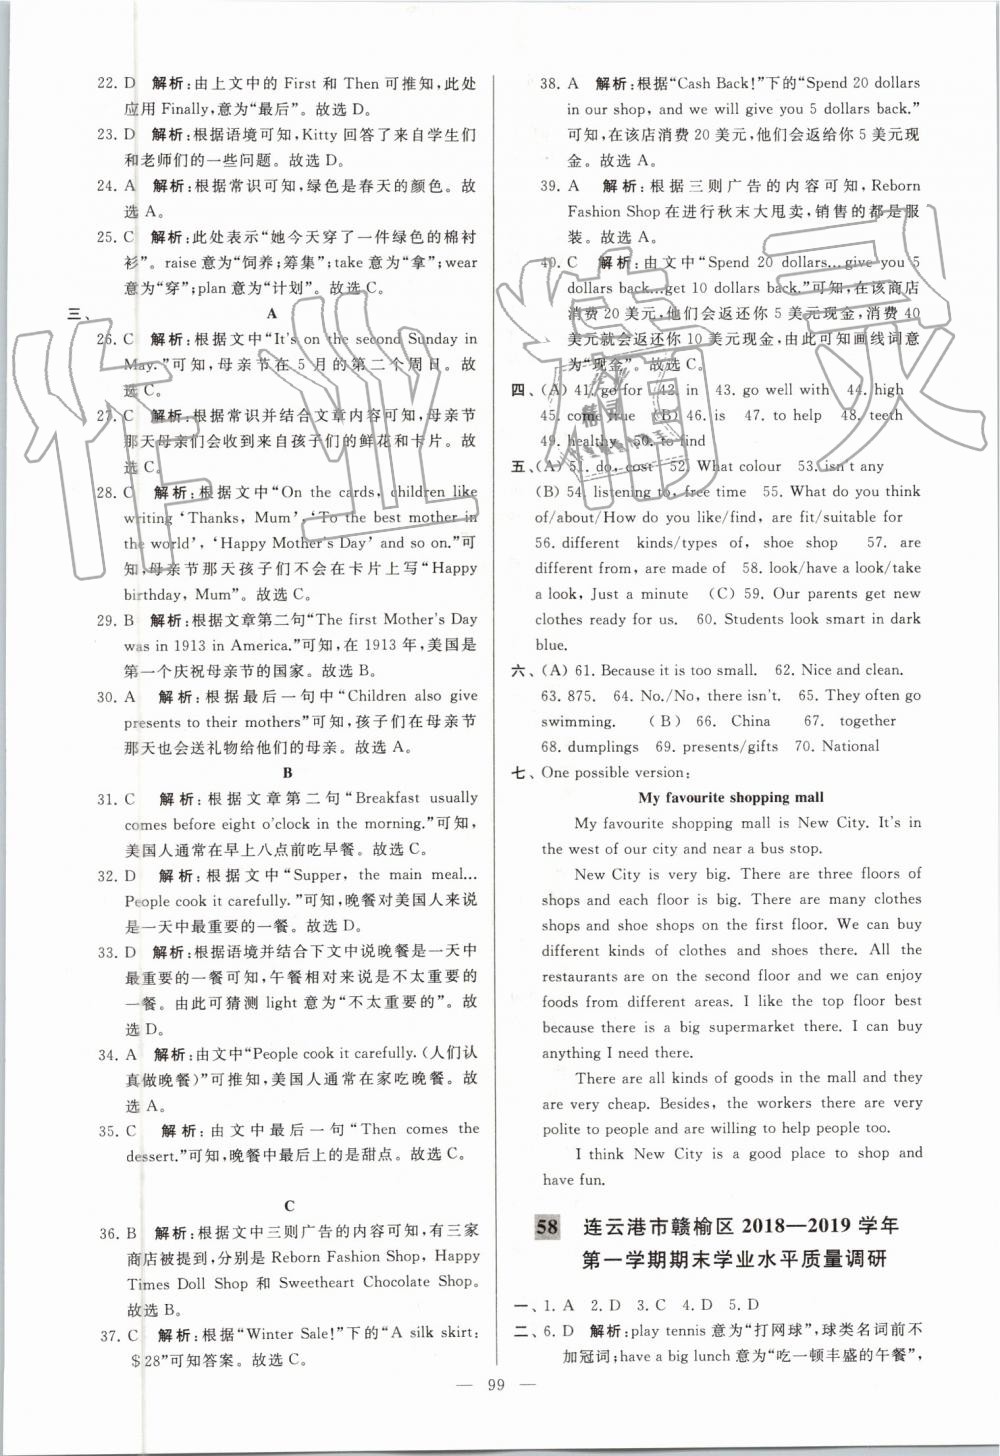 22. D　解析:由上文中的 First 和 Then 可推知,此处
应用 Finally,意为“最后”。故选 D。
23. D　解析:根据语境可知,Kitty 回答了来自学生们
和老师们的一些问题。故选 D。
24. A　解析:根据常识可知,绿色是春天的颜色。故
选 A。
25. C　解析:此处表示“她今天穿了一件绿色的棉衬
衫”。raise 意为“饲养;筹集”;take 意为“拿”;wear
意为“穿”;plan 意为“计划”。故选 C。
三、　A
26. C　解析:根据文中“It's on the second Sunday in
May.”可知,母亲节在 5 月的第二个周日。故
选 C。
27. C　解析:根据常识并结合文章内容可知,母亲节
那天母亲们会收到来自孩子们的鲜花和卡片。故
选 C。
28. C　解析:根据文中“On the cards, children like
writing ‘Thanks, Mum’, ‘To the best mother in
the world’, ‘Happy Mother's Day’ and so on.”可
知,母亲节那天孩子们不会在卡片上写“Happy
birthday, Mum”。故选 C。
29. B　解析:根据文章第二句“The first Mother's Day
was in 1913 in America.”可知,在 1913 年,美国是
第一个庆祝母亲节的国家。故选 B。
30. A　解析:根据最后一句中“Children also give
presents to their mothers”可知,孩子们在母亲节
那天也会送礼物给他们的母亲。故选 A。
B
31. C　解析:根据文章第二句“Breakfast usually
comes before eight o'clock in the morning.”可知,
美国人通常在早上八点前吃早餐。故选 C。
32. D　解析:根据文中“Supper, the main meal...
People cook it carefully. ”可知,晚餐对美国人来说
是一天中最重要的一餐。故选 D。
33. D　解析:根据语境并结合下文中说晚餐是一天中
最重要的一餐可知,午餐相对来说是不太重要的
一餐。由此可猜测 light 意为“不太重要的”。故
选 D。
34. A　解析:由文中“People cook it carefully.(人们认
真做晚餐)”可推知,美国人通常在家吃晚餐。故
选 A。
35. C　解析:由文中最后一句“Then comes the
dessert.”可知,晚餐中最后上的是甜点。故选 C。
C
36. B　解析:根据文中三则广告的内容可知,有三家
商店被提到,分别是 Reborn Fashion Shop, Happy
Times Doll Shop 和 Sweetheart Chocolate Shop。
故选 B。
37. C　解析:根据“Winter Sale!”下的“A silk skirt:
$28”可知答案。故选 C。
38. A　解析:根据“Cash Back!”下的“Spend 20 dollars
in our shop, and we will give you 5 dollars back.”
可知,在该店消费 20 美元,他们会返给你 5 美元现
金。故选 A。
39. A　解析:根据三则广告的内容可知,Reborn
Fashion Shop 在进行秋末大甩卖,销售的都是服
装。故选 A。
40. C　解析:由文中“Spend 20 dollars...give you 5
dollars back...get 10 dollars back.”可知,在该商店
消费 20 美元,他们会返还你 5 美元现金,消费 40
美元就会返还你 10 美元现金,由此可知画线词意
为“现金”。故选 C。
四、(A) 41. go for　42. in　43. go well with　44. high
45. come true　(B) 46. is　47. to help　48. teeth
49. healthy　50. to find
五、(A) 51. do, cost　52. What colour　53. isn't any
(B) 54. listening to, free time　55. What do you think
of/about/How do you like/find, are fit/suitable for
56. different kinds/types of, shoe shop　57. are
different from, are made of　58. look/have a look/take
a look, Just a minute　(C) 59. Our parents get new
clothes ready for us.　60. Students look smart in dark
blue.
六、(A) 61. Because it is too small.　62. Nice and clean.
63. 875.　64. No./No, there isn't.　65. They often go
swimming.　(B) 66. China　67. together
68. dumplings　69. presents/gifts　70. National
七、One possible version:
My favourite shopping mall
My favourite shopping mall is New City. It's in
the west of our city and near a bus stop.
New City is very big. There are three floors of
shops and each floor is big. There are many clothes
shops and shoe shops on the first floor. We can buy
different kinds of clothes and shoes there. All the
restaurants are on the second floor and we can enjoy
foods from different areas. I like the top floor best
because there is a big supermarket there. I can buy
anything I need there.
There are all kinds of goods in the mall and they
are very cheap. Besides, the workers there are very
polite to people and are willing to help people too.
I think New City is a good place to shop and
have fun.
58　连云港市赣榆区 2018—2019 学年
第一学期期末学业水平质量调研
一、1. A　2. D　3. C　4. D　5. D
二、6. D　解析:play tennis 意为“打网球”,球类名词前不
加冠词;have a big lunch 意为“吃一顿丰盛的午餐”,
— 99 —
作业精灵